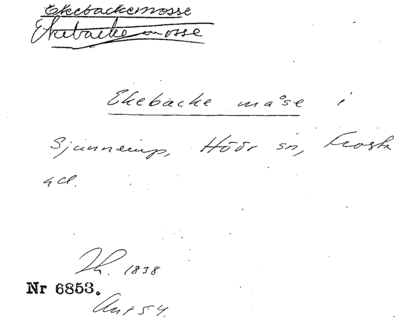 Ekebackemosse
Ekebacke mosse
Ekebacke måse i
Sjunnerup, Höör sn, Frosta
hd.
Th. 1838
Nr 6853.
Ant 54.